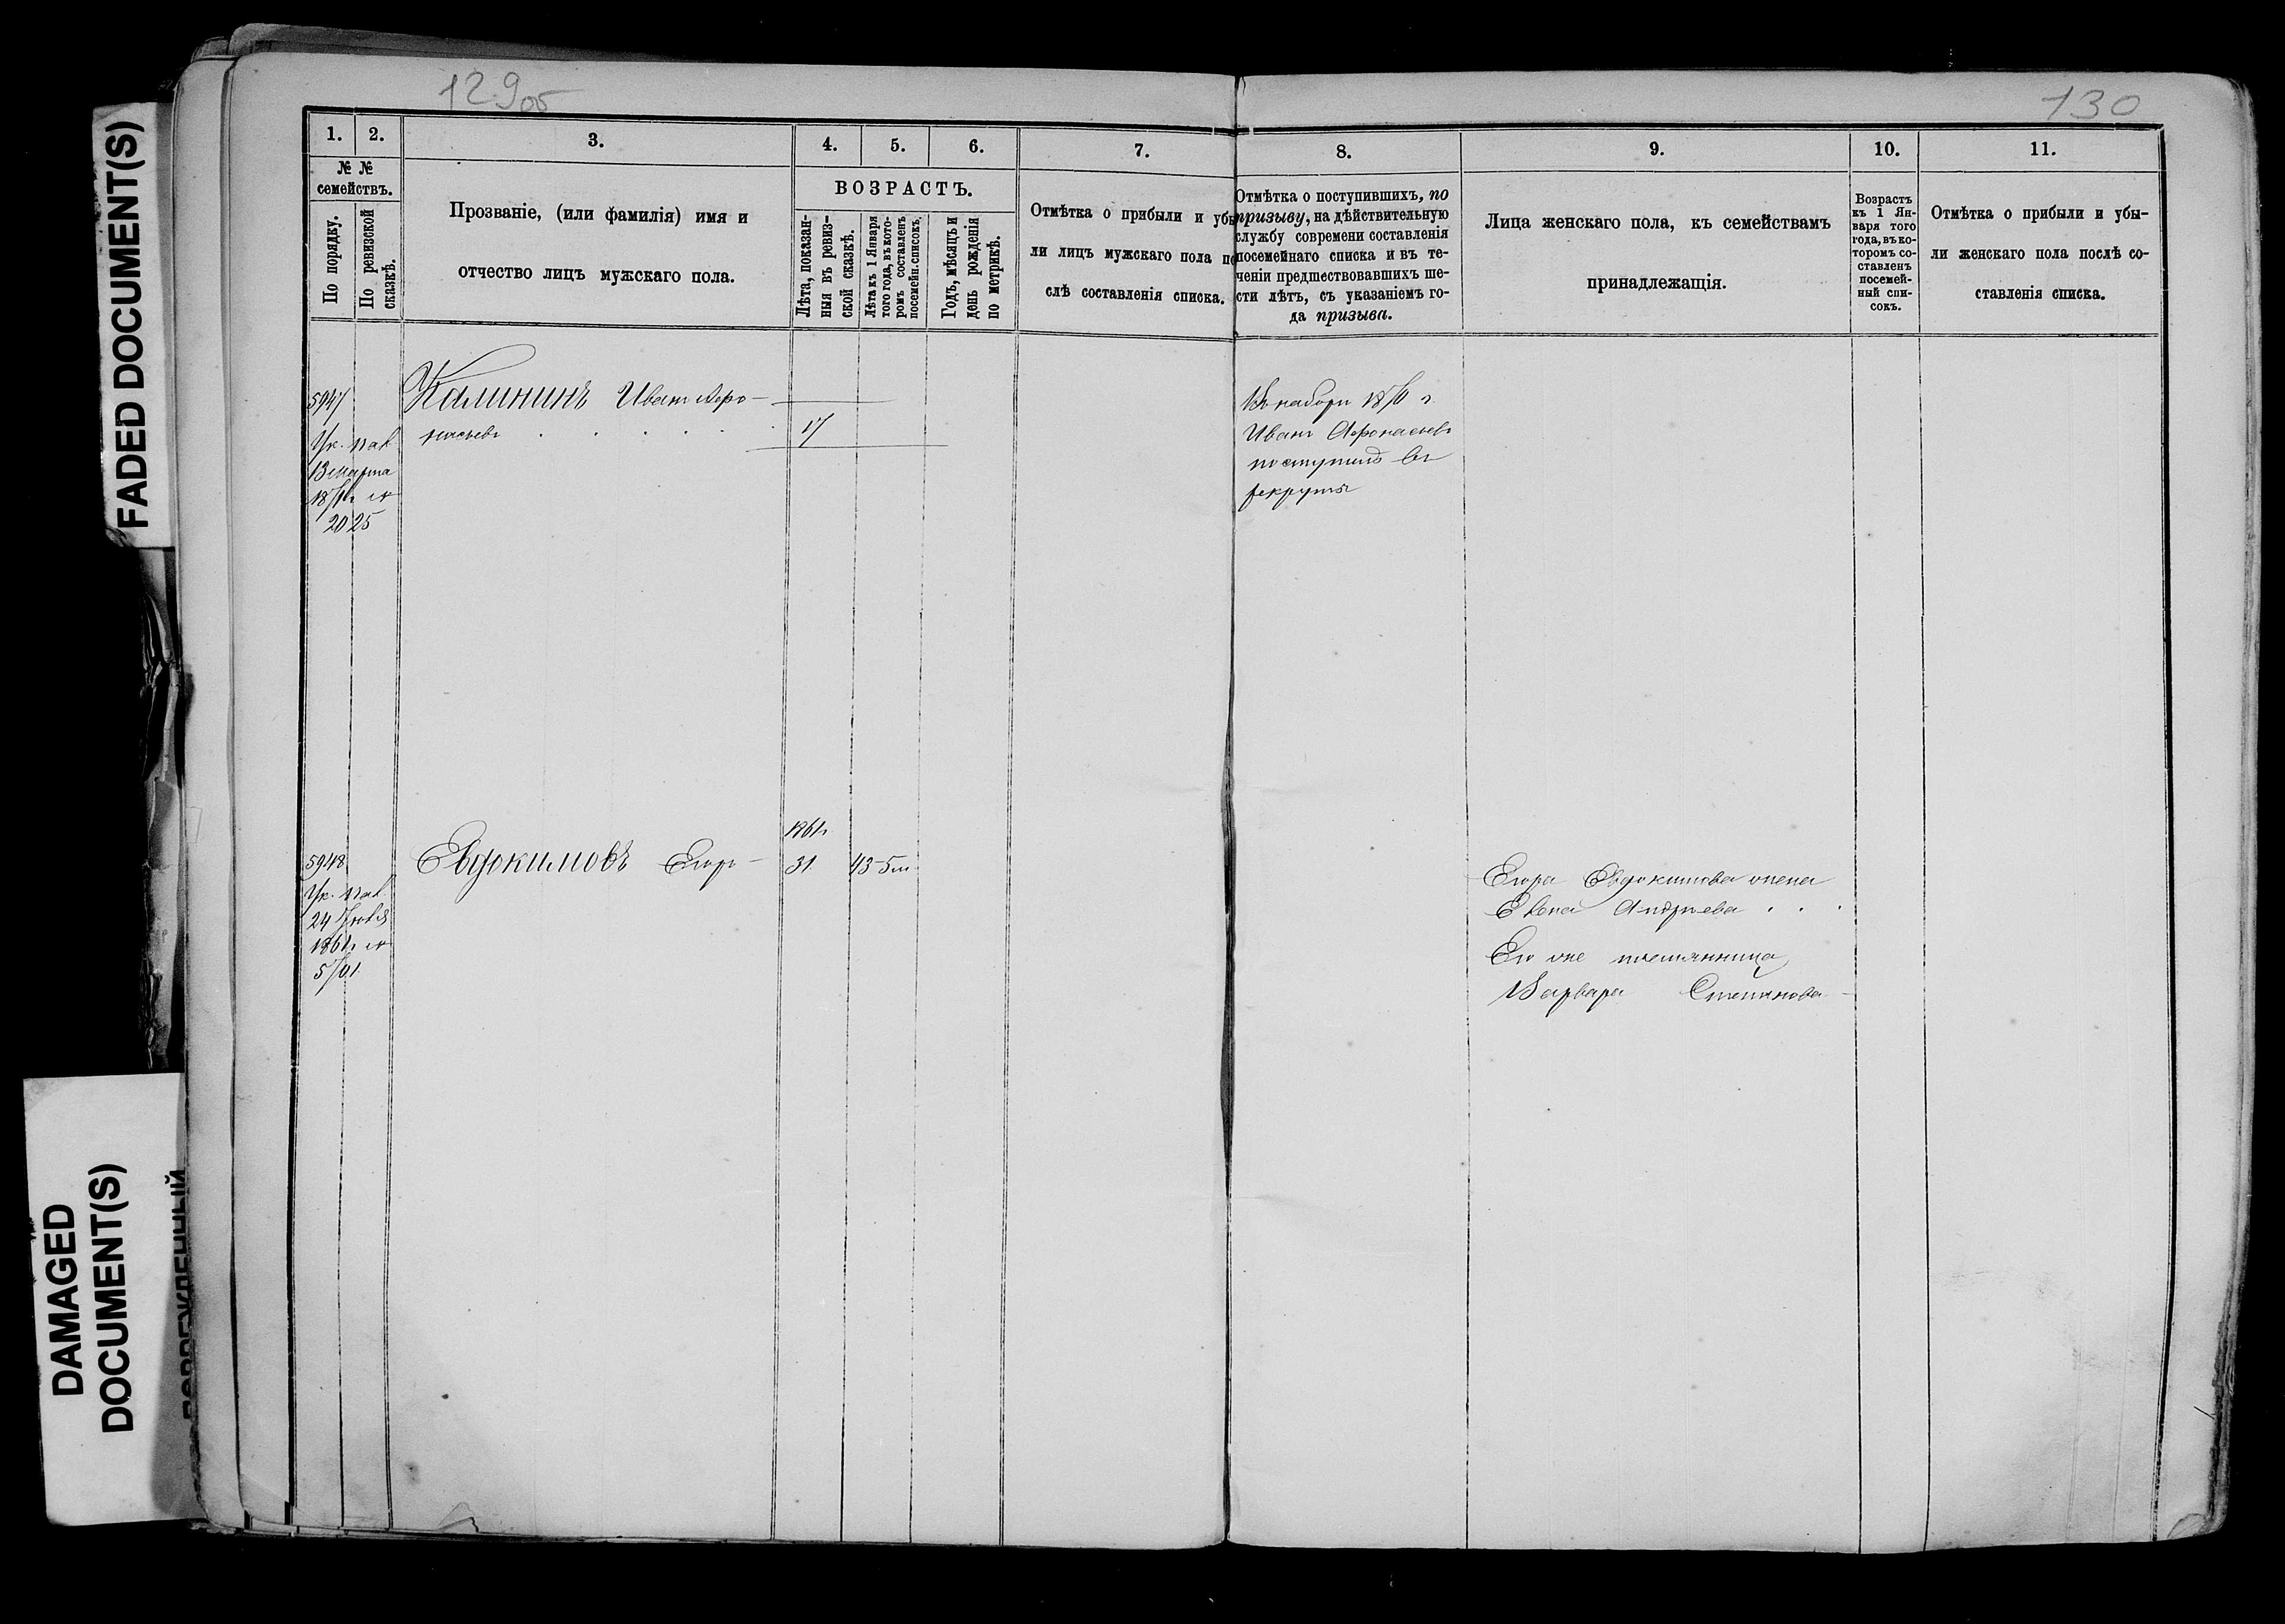 FADED DOCUMENT(S)
DAMAGED
DOCUMENT(S)
129об
130
1.
2.
3.
4.
5.
6.
7.
8.
9.
10.
11.
№ №
семействъ.
По порядку.
По ревизской
сказкѣ.
Прозваніе, (или фамилія) имя и
отчество лицъ мужскаго пола.
ВОЗРАСТЪ.
Лѣта, показан-
ныя въ ревиз-
ской сказкѣ.
Лѣта къ 1 Января
того года, въ кото-
ромъ составленъ
посемейн. списокъ.
Годъ, мѣсяцъ и
день рожденія
по метрикѣ.
Отмѣтка о прибыли и убы
ли лицъ мужскаго пола по
слѣ составленія списка.
Отмѣтка о поступившихъ, по
призыву, на дѣйствительную
службу современи составленія
посемейнаго списка и въ те-
ченіи предшествовавшихъ ше-
сти лѣтъ, съ указаніемъ го-
да призыва.
Лица женскаго пола, къ семействамъ
принадлежащія.
Возрастъ
къ 1 Ян-
варя того
года, въ ко-
торомъ со-
ставленъ
посемей-
ный спи-
сокъ.
Отмѣтка о прибыли и убы-
ли женскаго пола послѣ со-
ставленія списка.
5947
Ук. пал.
13 марта
2025
Калининъ Иванъ Афо-
насьевъ
17
Въ наборъ 1870 г.
Иванъ Афонасьевъ
поступилъ въ
рекруты
5948
Ук. пал.
24 Іюля
1861г №
5701
Евдокимовъ Егоръ
1861г
31
43-5м
Егора Евдокимова жена
Елена Андреева
Его же племянница
Варвара Степанова